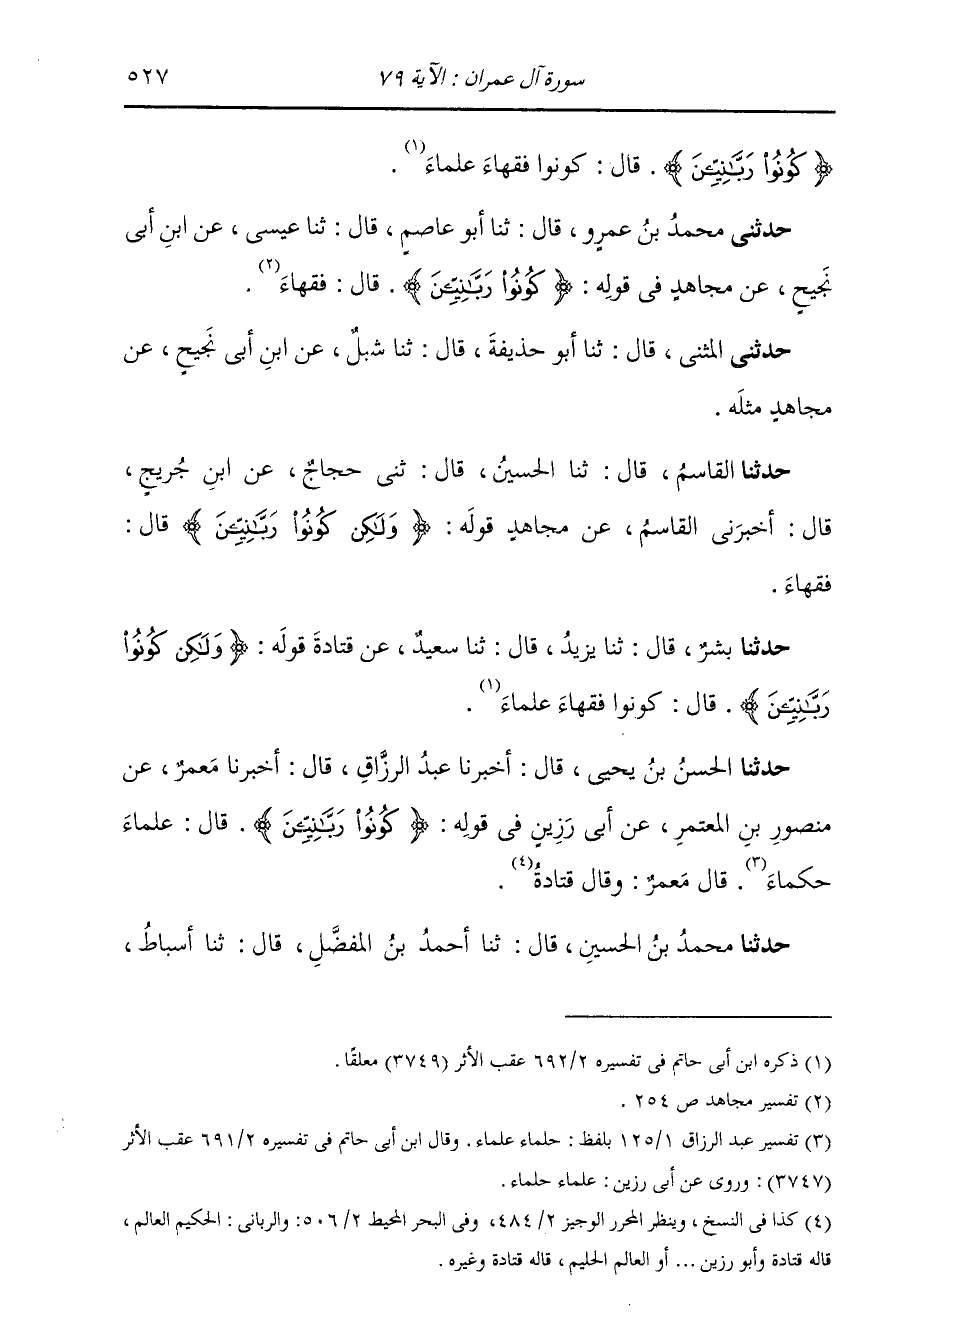 سورة آل عمران : الآية ٧٩ ٥٢٧
﴿ كُونُوا۟ رَبَّـٰنِيِّـۧنَ ﴾ . قال : كونوا فقهاءَ علماءَ(١) .
حدثنى محمدُ بنُ عمرٍو ، قال : ثنا أبو عاصمٍ ، قال : ثنا عيسى ، عن ابنِ أبى
نَجيحٍ ، عن مجاهدٍ فى قولِه : ﴿ كُونُوا۟ رَبَّـٰنِيِّـۧنَ ﴾ . قال : فقهاءَ(٢) .
حدثنى المثنى ، قال : ثنا أبو حذيفةَ ، قال : ثنا شبلٌ ، عن ابنِ أبى نَجيحٍ ، عن
مجاهدٍ مثلَه .
حدثنا القاسمُ ، قال : ثنا الحسينُ ، قال : ثنى حجاجٌ ، عن ابنِ جُريجٍ ،
قال : أخبرَنى القاسمُ ، عن مجاهدٍ قولَه : ﴿ وَلَـٰكِن كُونُوا۟ رَبَّـٰنِيِّـۧنَ ﴾ قال :
فقهاءَ .
حدثنا بشرٌ ، قال : ثنا يزيدُ ، قال : ثنا سعيدٌ ، عن قتادةَ قولَه : ﴿ وَلَـٰكِن كُونُوا۟
رَبَّـٰنِيِّـۧنَ ﴾ . قال : كونوا فقهاءَ علماءَ(١) .
حدثنا الحسنُ بنُ يحيى ، قال : أخبرنا عبدُ الرزَّاقِ ، قال : أخبرنا مَعمرٌ ، عن
منصورِ بنِ المعتمرِ ، عن أبى رَزِينٍ فى قولِه : ﴿ كُونُوا۟ رَبَّـٰنِيِّـۧنَ ﴾ . قال : علماءَ
حكماءَ(٣) . قال مَعمرٌ : وقال قتادةُ(٤) .
حدثنا محمدُ بنُ الحسينِ ، قال : ثنا أحمدُ بنُ المفضَّلِ ، قال : ثنا أسباطُ ،
(١) ذكره ابن أبى حاتم فى تفسيره ٦٩٢/٢ عقب الأثر (٣٧٤٩) معلقًا .
(٢) تفسير مجاهد ص ٢٥٤ .
(٣) تفسير عبد الرزاق ١٢٥/١ بلفظ : حلماء علماء . وقال ابن أبى حاتم فى تفسيره ٦٩١/٢ عقب الأثر
(٣٧٤٧) : وروى عن أبى رزين : علماء حلماء .
(٤) كذا فى النسخ ، وينظر المحرر الوجيز ٢/ ٤٨٤، وفى البحر المحيط ٢/ ٥٠٦: والربانى : الحكيم العالم ،
قاله قتادة وأبو رزين ... أو العالم الحليم ، قاله قتادة وغيره .